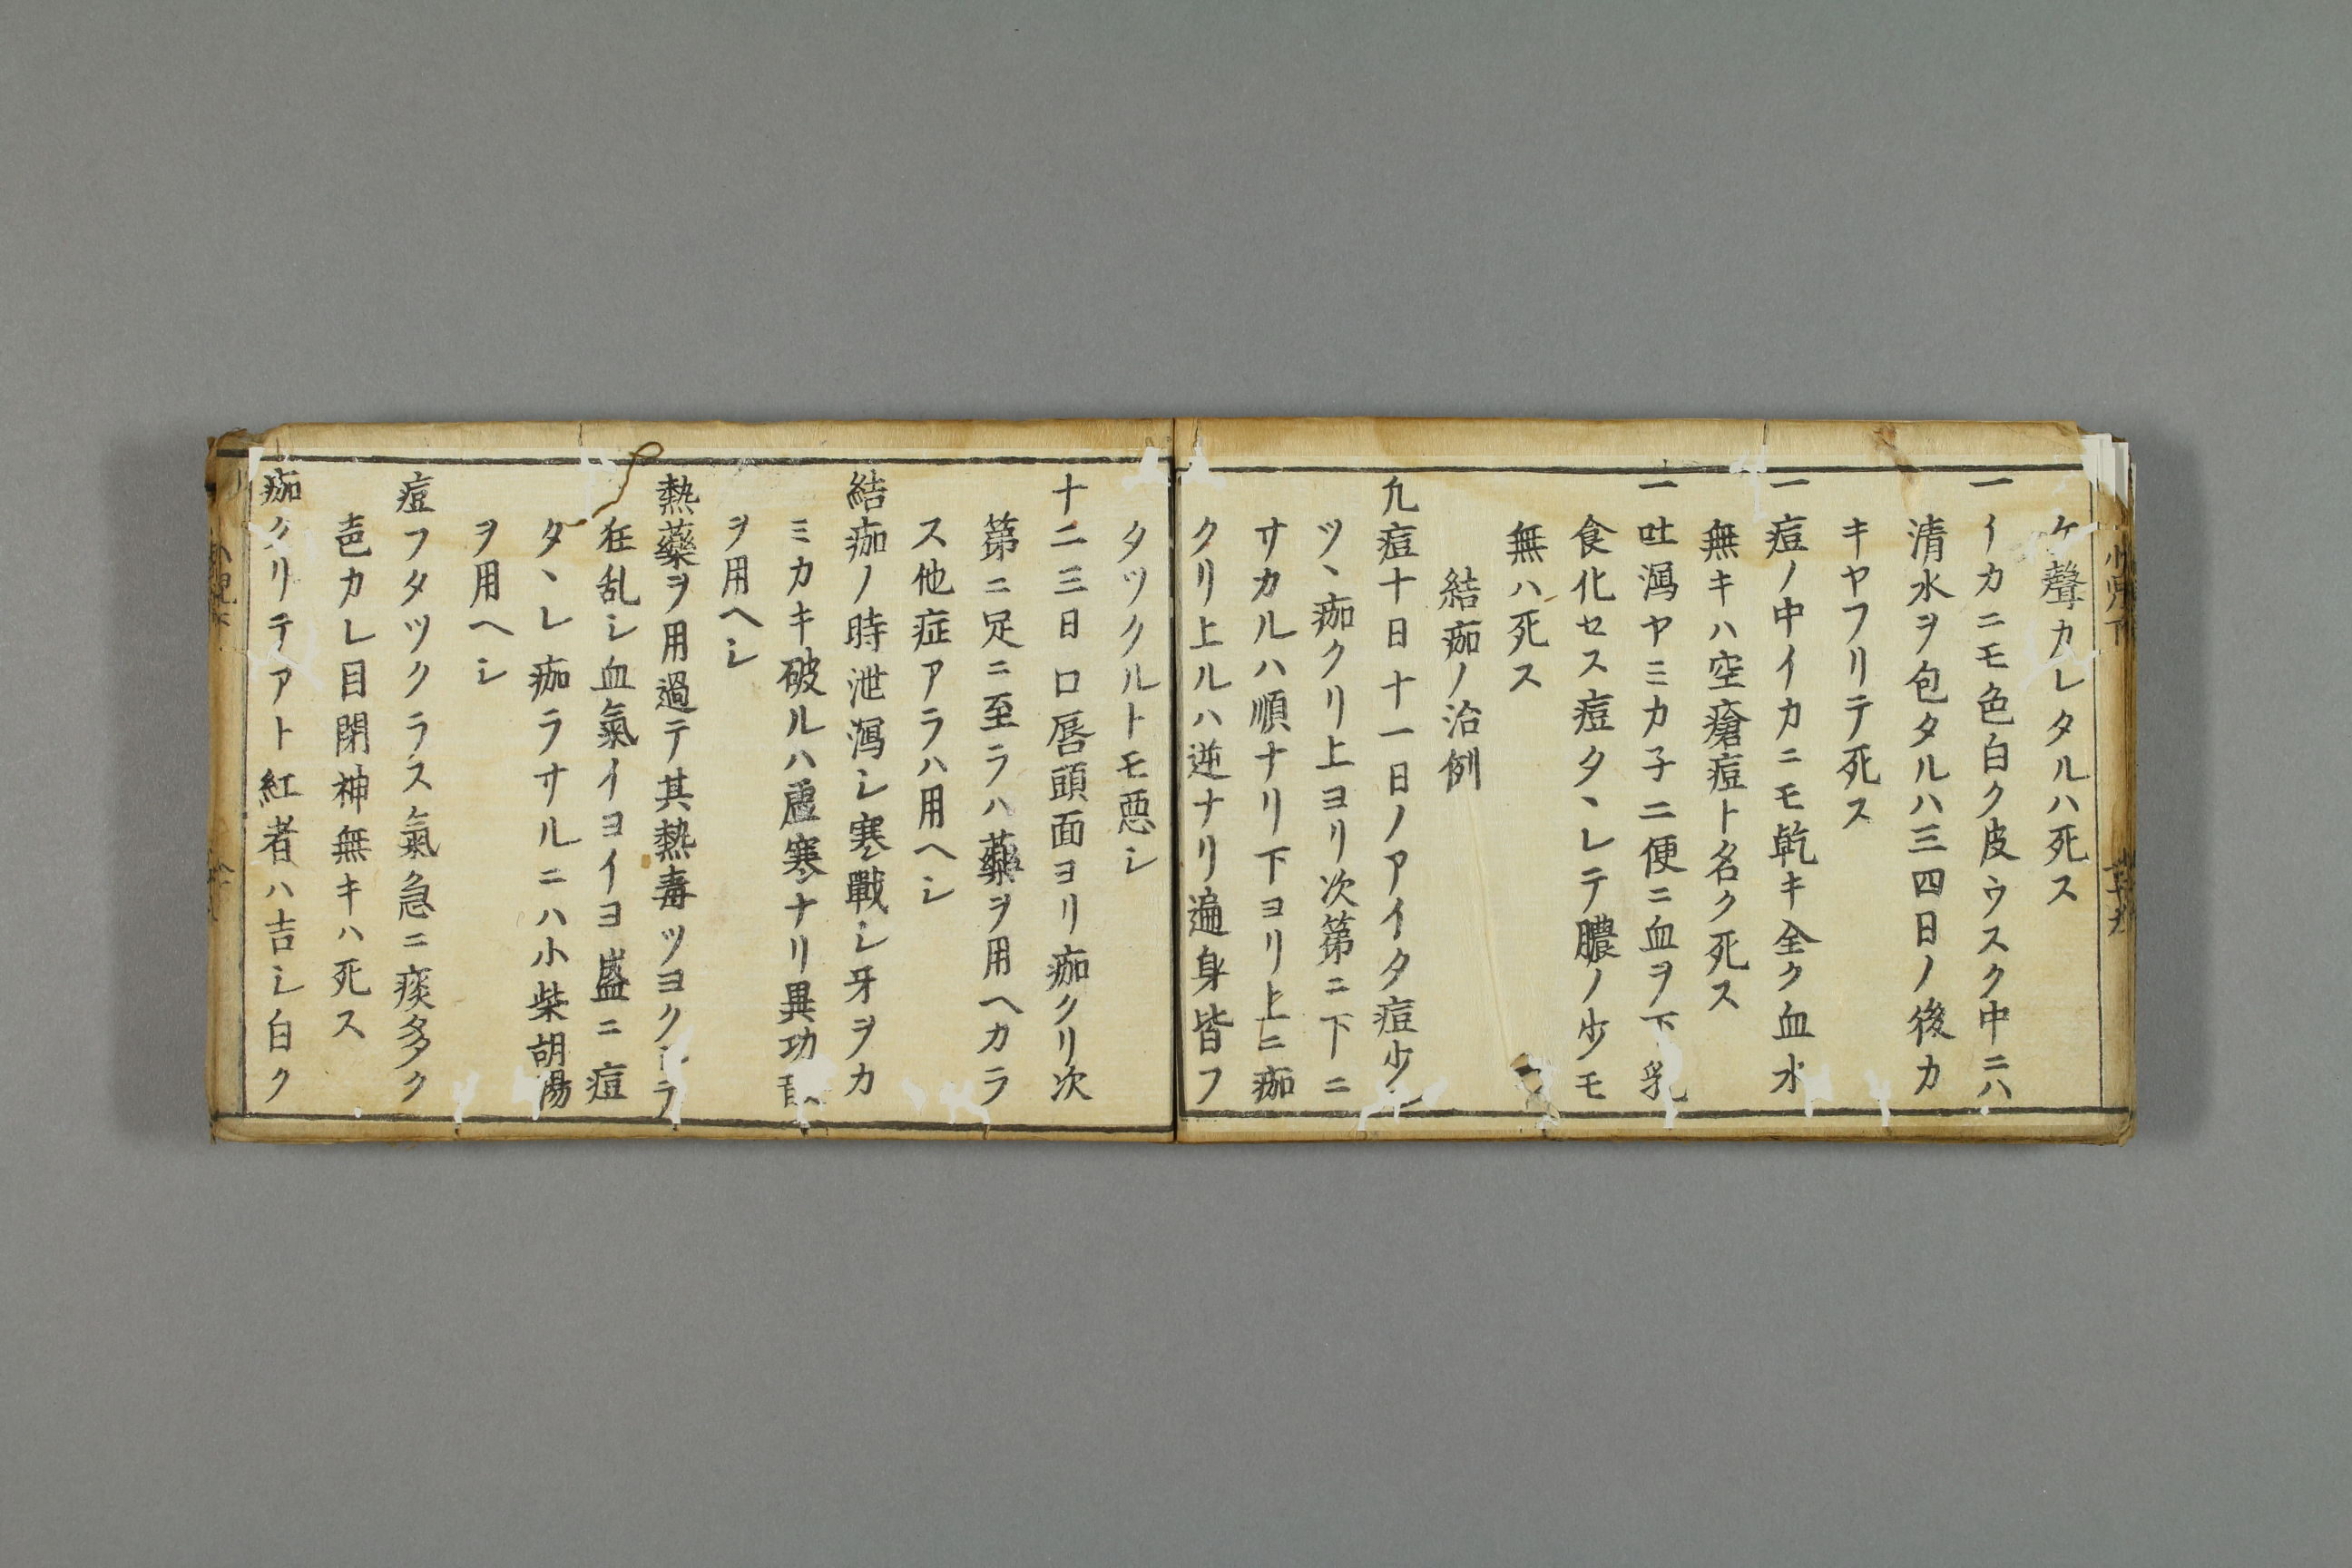 ケ聲カレタルハ死ス
一イカニモ色白ク皮ウスク中ニハ
清水ヲ包タルハ三四日ノ後カ
キヤフリテ死ス
一痘ノ中イカニモ乾キ全ク血水
無キハ空瘡痘ト名ク死ス
一吐瀉ヤミカ子二便ニ血ヲ下乳
食化セス痘タヽレテ膿ノ少モ
無ハ死ス
結痂ノ治例
凢痘十日十一日ノアイタ痘少
ツヽ痂クリ上ヨリ次第ニ下ニ
サカルハ順ナリ下ヨリ上ニ痂
クリ上ルハ逆ナリ遍身皆フ
タツクルトモ悪シ
十二三日口唇頭面ヨリ痂クリ次
第ニ足ニ至ラハ藥ヲ用ヘカラ
ス他症アラハ用ヘシ
結痂ノ時泄瀉シ寒戰シ牙ヲカ
ミカキ破ルハ虚寒ナリ異功
ヲ用ヘシ
熱藥ヲ用過テ其熱毒ツヨクシテ
狂乱シ血氣イヨイヨ盛ニ痘
タヽレ痂ラサルニハ小柴胡湯
ヲ用ヘシ
痘フタツクラス氣急ニ痰多ク
声カレ目閉神無キハ死ス
痂クリテアト紅者ハ吉シ白ク